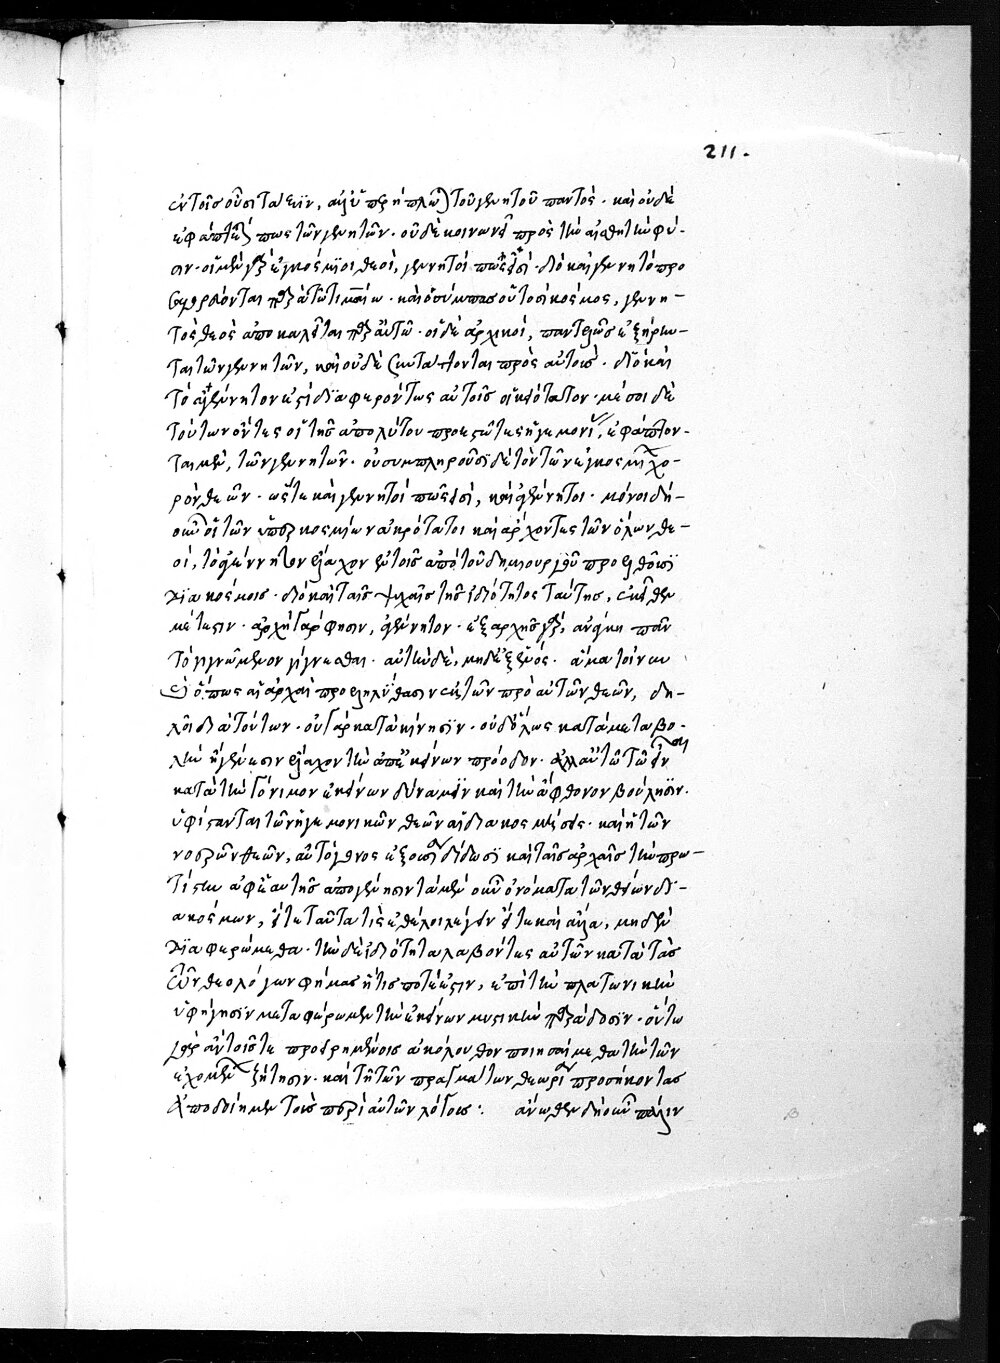 211.
ἐν τοῖς οὖσι τάξιν, ἀεὶ ὑπερήπλωται τοῦ γενητοῦ παντός· καὶ οὐδὲ
ἐφάπτεταί πως τῶν γενητῶν· οὐδὲ κοινωνεῖ πρὸς τὴν αἰσθητὴν φύ-
σιν· οἱ μὲν γὰρ ἐγκόσμιοι θεοὶ, γενητοί πώς εἰσί· διὸ καὶ γενητὸ προ
σαγορεύονται παρὰ τῶ τιμαίω· καὶ ὁ σύμπας οὑτοσὶ κόσμος, γενη-
τὸς θεὸς ἀποκαλεῖται παρ' αὐτῶ· οἱ δὲ ἀρχικοὶ, παντελῶς ἐξήρην-
ται τῶν γενητῶν, καὶ οὐδὲ συντάττονται πρὸς αὐτούς· διὸ καὶ
τὸ ἀγένητον ἐστὶ διαφερόντως αὐτοῖς οἰκειότατον· μέσοι δὲ
τούτων ὄντες οἱ τῆς ἀπολύτου προεστῶτες ἡγεμονίας, ἐφάπτον-
ται μὲν, τῶν γενητῶν· οὐ συμπληροῦσι δὲ τὸν τῶν ἐγκοσμίων χο-
ρὸν θεῶν· ὥστε καὶ γενητοί πώς εἰσι, καὶ ἀγένητοι· μόνοι δὴ-
οὖν οἱ τῶν ὑπερκοσμίων ἀκρότατοι καὶ ἄρχοντες τῶν ὅλων θε-
οί, τὸ ἀγέννητον ἔλαχον ἐν τοῖς ἀπὸ τοῦ δημιουργοῦ προελθοῦσι
διακόσμοις· διὸ καὶ ταῖς ψυχαῖς τῆς ἰδιότητος ταύτης, ἐκεῖθεν
μέτεστιν· ἀρχὴ γάρ φησιν, ἀγένητον· ἐξ ἀρχῆς γὰρ, ἀνάγκη πᾶν
τὸ γιγνόμενον γίγνεσθαι· αὐτὴν δὲ, μηδ' ἐξ ἑνός· ἅμα τοίνυν
καὶ ὅπως αἱ ἀρχαὶ προεληλύθασιν ἐκ τῶν πρὸ αὐτῶν θεῶν, δη-
λοῖ διὰ τούτων· οὐ γὰρ κατὰ κίνησιν· οὐδ' ὅλως κατὰ μεταβο-
λὴν ἢ γένεσιν ἔλαχον τὴν ἀπ' ἐκείνων πρόοδον· ἀλλ' αὐτῶ τῶ εἶναι
κατὰ τὴν γόνιμον ἐκείνων δύναμιν καὶ τὴν ἄφθονον βούλησιν·
ὑφίστανται τῶν ἡγεμονικῶν θεῶν αἱ διακοσμήσεις· καὶ ἡ τῶν
νοερῶν θεῶν, αὐτόγονος ἐξουσία δίδωσι καὶ ταῖς ἀρχαῖς τὴν πρω-
τίστην ἀφ' ἑαυτῆς ἀπογέννησιν τὰ μὲν οὖν ὀνόματα τῶν θείων δι-
ακόσμων, εἴτε ταῦτα τὶς ἐθέλοι λέγειν εἴτε καὶ ἄλλα, μηδὲν
διαφερώμεθα· τὴν δὲ ἰδιότητα λαβόντες αὐτῶν κατὰ τὰς
τῶν θεολόγων φήμας ἥτις ποτέ ἐστιν, ἐπὶ τὴν πλατωνικὴν
ὑφήγησιν μεταφέρωμεν τὴν ἐκείνων μυστικὴν παράδοσιν· οὕτω
γὰρ ἂν τοῖς τε προειρημένοις ἀκόλουθον ποιησαίμεθα τὴν τῶν
ἐχομένων ζήτησιν· καὶ τῇ τῶν πραγμάτων θεωρία προσήκοντας
ἀποδοίημεν τοὺς περὶ αὐτῶν λόγους: ἄνωθεν δὴ οὖν πάλιν